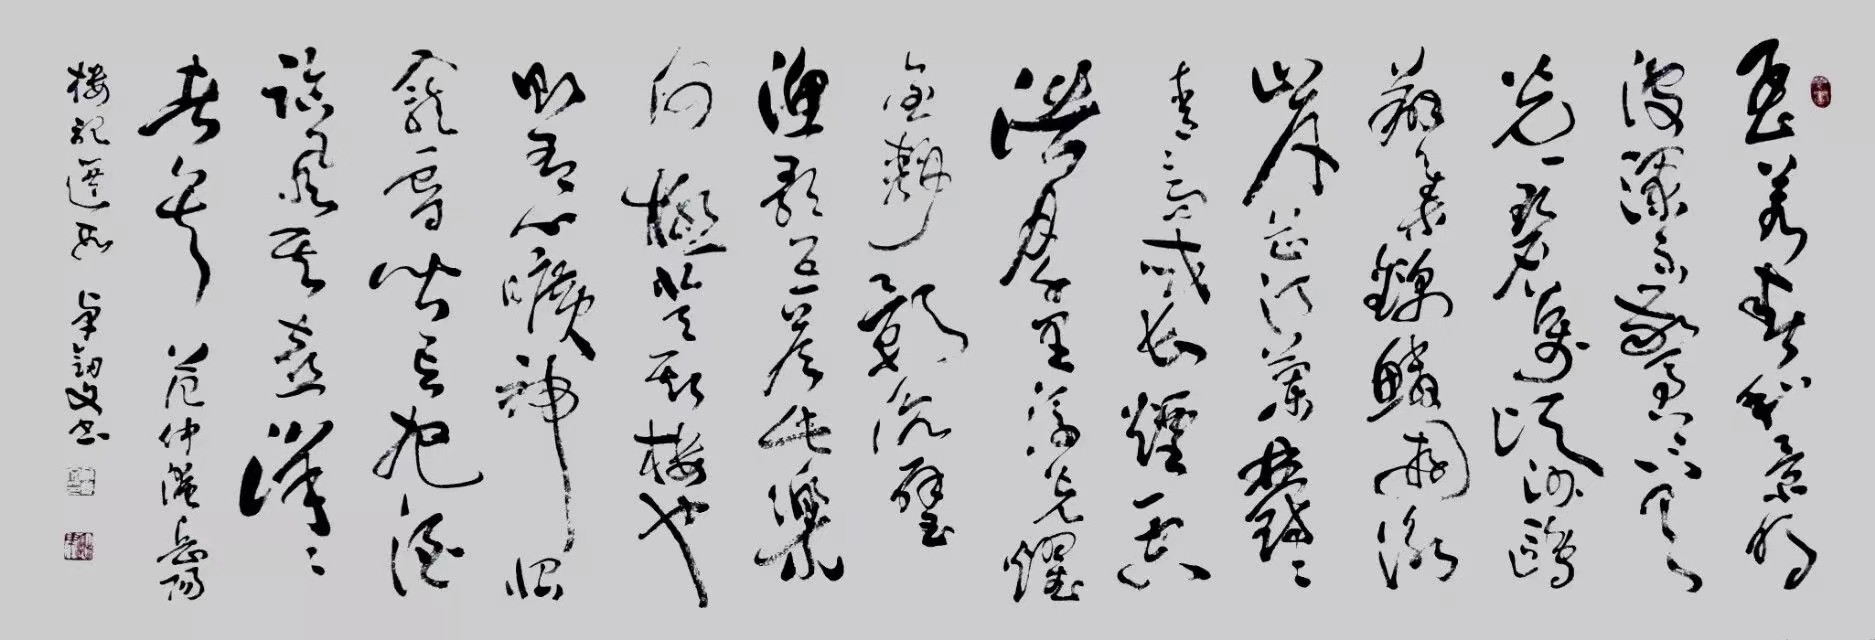 至若春和景明
波瀾不驚上下天
光一碧萬頃沙鷗
翔集錦鱗游泳
岸芷汀蘭鬱々
青々而或長煙一空
浩月千里浮光耀
金靜影沉璧
漁歌互答此樂
何極登斯樓也
則有心曠神怡
寵辱皆忘把酒
臨風其喜洋々
者矣 范仲淹岳陽
樓記選 文書